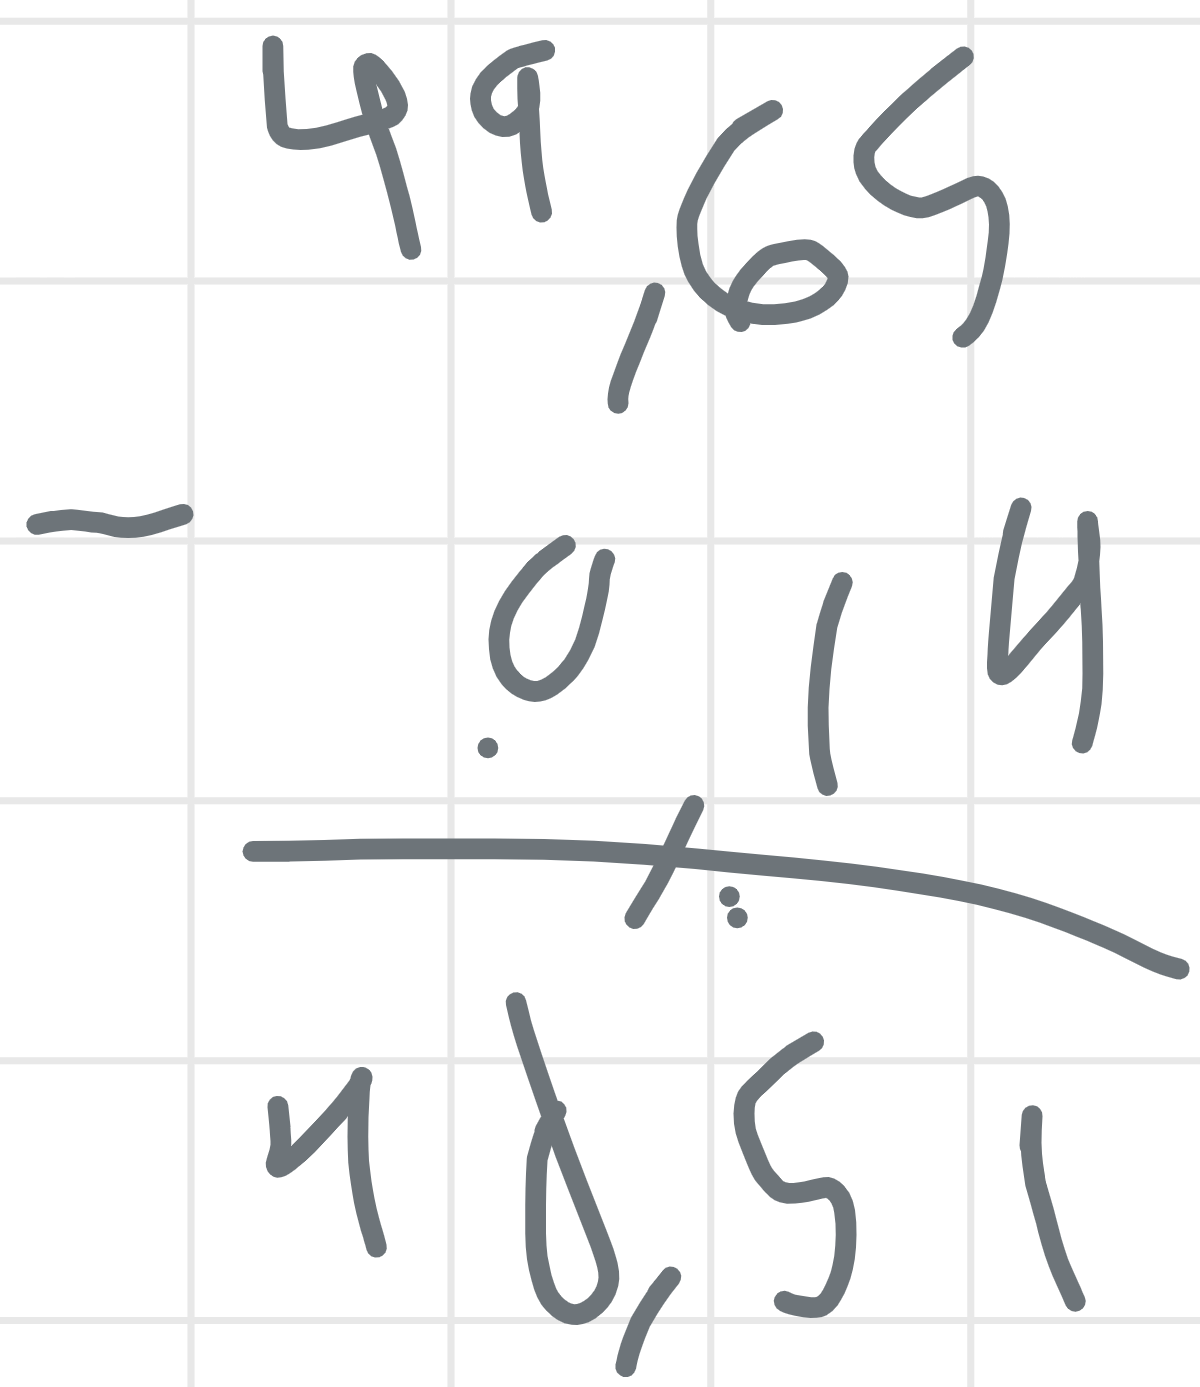 49,65
− 0,14
48,51